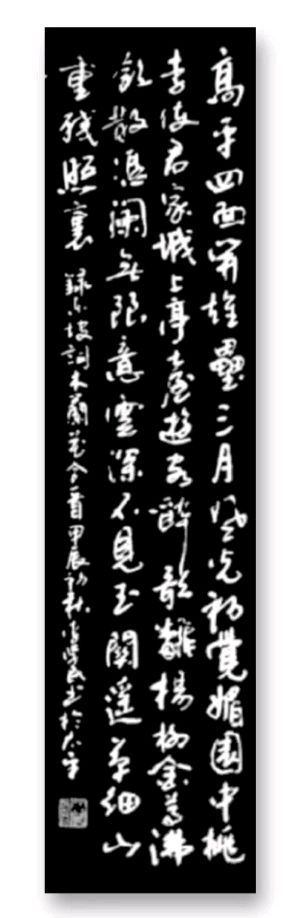 高平四面開雄壘三月風光初覺媚園中桃
李使君家城上亭臺遊客醉歌飜楊柳金尊沸
飲散憑闌無限意雲深不見玉關遙草細山
重殘照裏 錄東坡詞木蘭花令一首甲辰初秋書於太平